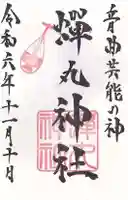 音曲芸能の神
蟬丸神社
令和六年十一月十日